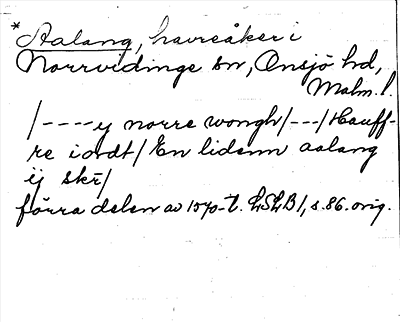 * Aalang, havreåker i
Norrvidinge sn, Onsjö hd,
Malm. l.
/----y norre wongh/---/Hauff-
re iordt/En lidenn aalang
ij skr/
förra delen av 1570-t. LSLB1, s. 86. orig.